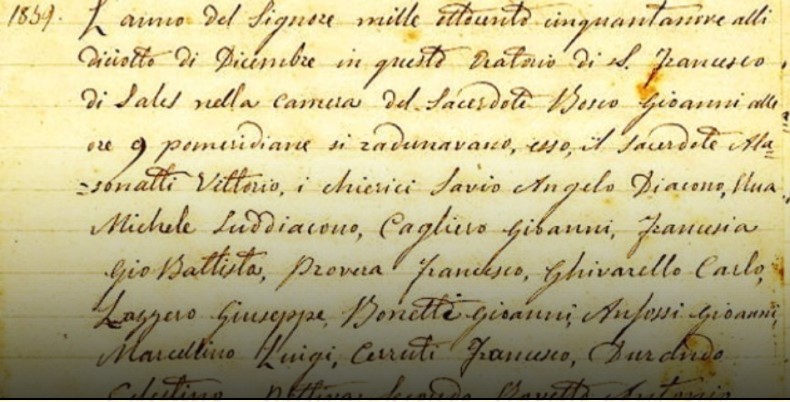 1859. L'anno del Signore mille ottocento cinquantanove alli
diciotto di Dicembre in questo Oratorio di S. Francesco
di Sales nella camera del Sacerdote Bosco Gioanni alle
ore 9 pomeridiane si radunavano, esso, il Sacerdote Ala=
=sonatti Vittorio, i chierici Savio Angelo Diacono, Rua
Michele Suddiacono, Cagliero Gioanni, Francesia
Gio Battista, Provera Francesco, Ghivarello Carlo,
Lazzero Giuseppe, Bonetti Gioanni, Anfossi Gioanni,
Marcellino Luigi, Cerruti Francesco, Durando
Celestino, Pettiva Secondo, Rovetto Antonio